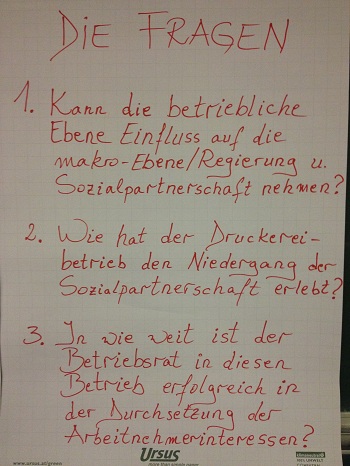 DIE FRAGEN
1. Kann die betriebliche
Ebene Einfluss auf die
makro-Ebene/Regierung u.
Sozialpartnerschaft nehmen?
2. Wie hat der Druckerei-
betrieb den Niedergang der
Sozialpartnerschaft erlebt?
3. In wie weit ist der
Betriebsrat in diesen
Betrieb erfolgreich in
der Durchsetzung der
Arbeitnehmerinteressen?
www.ursus.at/green
Ursus
more than simple paper